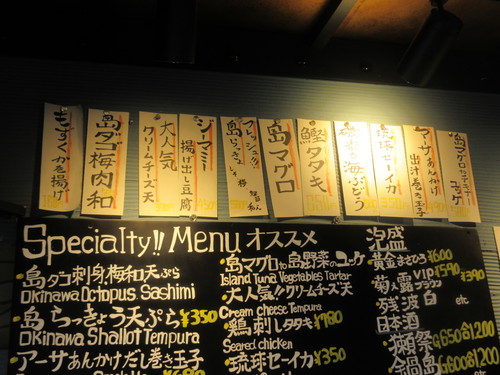 もずくかき揚げ
島ダコ梅肉和
大人気
クリームチーズ天
ジーマミー
揚げ出し豆腐
フレッシュ
島らっきょう
島マグロ
鰹タタキ
海ぶどう
琉球セーイカ
アーサあんかけ
出汁巻き玉子
Specialty!! Menu オススメ
・島ダコ刺身、梅和天ぷら
Okinawa Octopus Sashimi
・島らっきょう天ぷら ¥350
Okinawa Shallot Tempura
・アーサあんかけだし巻き玉子
・島マグロと島野菜のユッケ
Island Tuna Vegetables Tartar
・大人気!! クリームチーズ天
Cream cheese Tempura
・鶏刺しタタキ ¥780
Seared chicken
・琉球セーイカ ¥350
泡盛
黄金まさひろ ¥600
菊之露 VIP ¥590
ブラウン ¥390
残波 白 etc
日本酒 etc
獺祭 G650 合1,200
鍋島 G600 合1,200